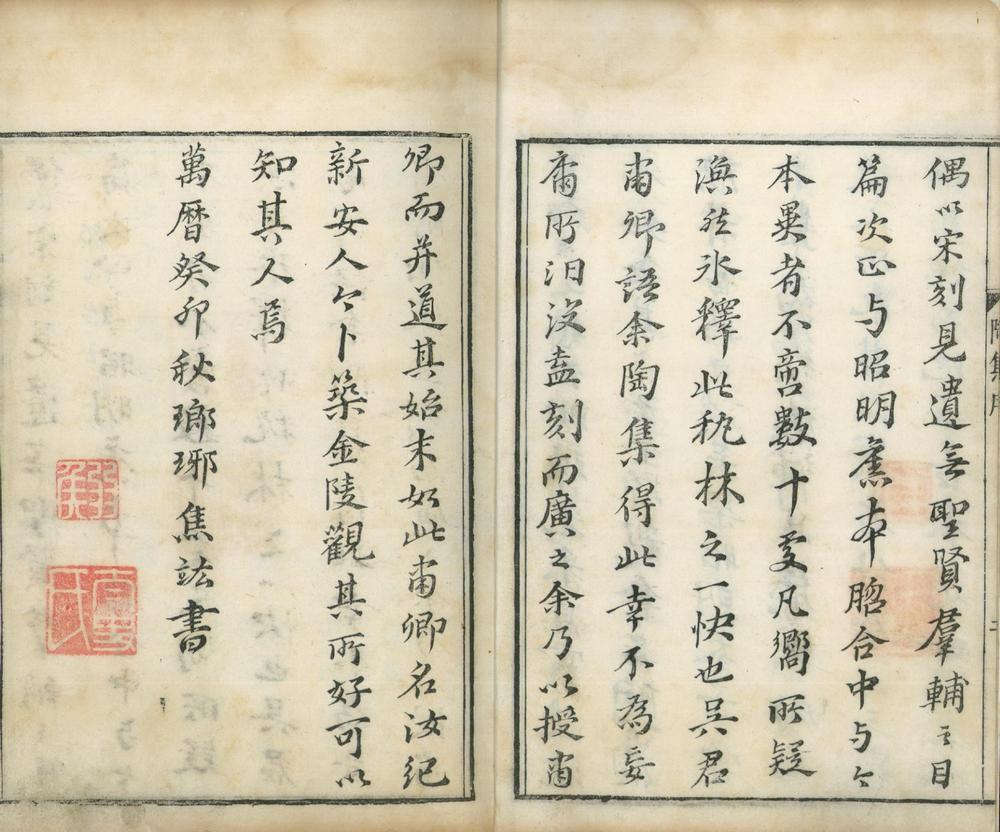 偶以宋刻見遺無聖賢羣輔之目
篇次正与昭明舊本脗合中与今
本異者不啻數十處凡嚮所疑
渙然氷釋此秇林之一快也吳君
甫卿語余陶集得此幸不為妄
庸所汩没盍刻而廣之余乃以授甫
卿而并道其始末如此甫卿名汝紀
新安人今卜築金陵觀其所好可以
知其人焉
萬曆癸卯秋瑯琊焦竑書